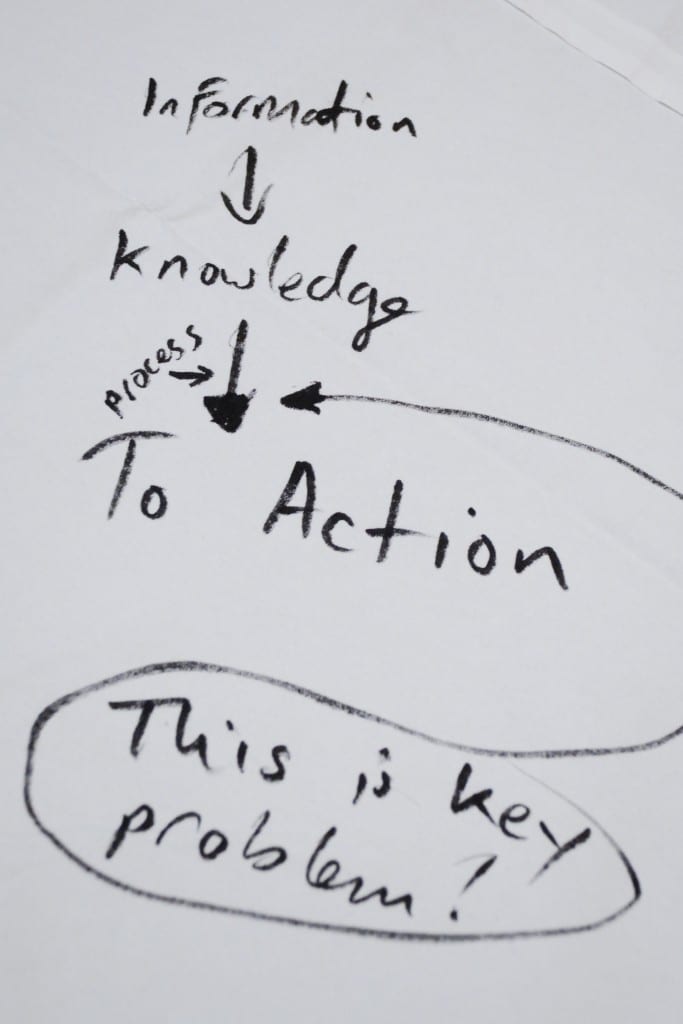 Information
Knowledge
process
To Action
This is key
problem!